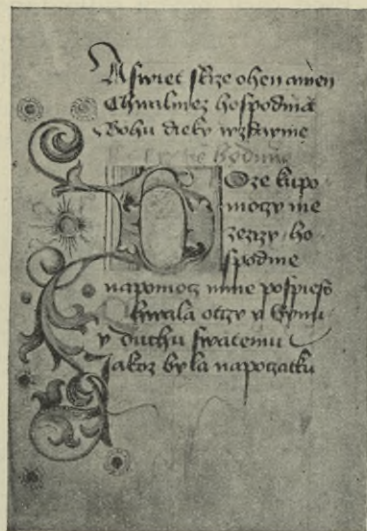 A swiet skrze ohen amen
Chwalmez hospodina
Bohu dieky wzdawme
Boze kupo
moczy me
zezrzy ho
spodine
napomocz mnie pospiess
Chwala otczy y Synu
y duchu swatemu
Jakoz byla napoczatku